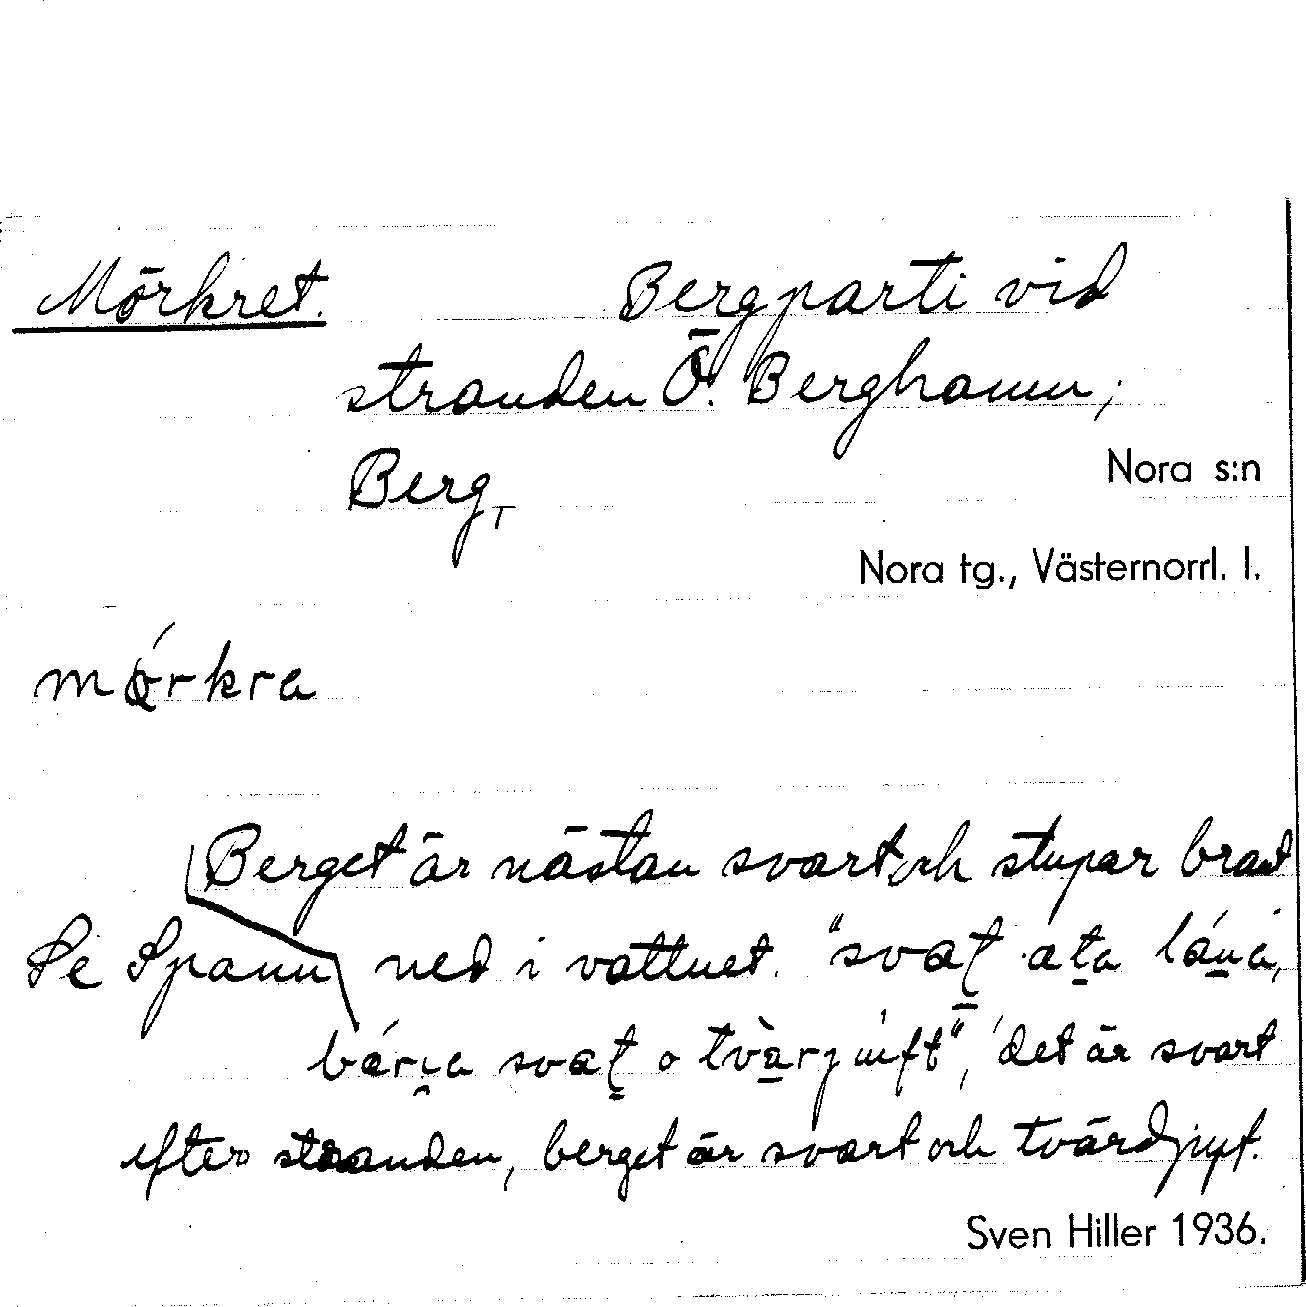 Mörkret. Bergparti vid
stranden Ö. Berghamn,
Berg
Nora s:n
Nora tg., Västernorrl. l.
mǫ́rkra
Berget är nästan svart och stupar brant
Se Spann ned i vattnet. "svaţ
svaţ o
det är svart
efter stranden, berget är svart och tvärdjupt.
Sven Hiller 1936.